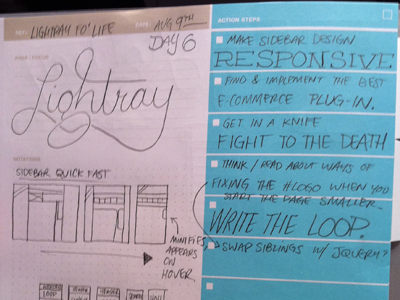 LIGHTRAY FO' LIFE
AUG 9TH
DAY 6
Lightray
SIDEBAR QUICK FAST
MINIFIES
APPEARS
ON
HOVER
ACTION STEPS
MAKE SIDEBAR DESIGN
RESPONSIVE
FIND & IMPLEMENT THE BEST
E-COMMERCE PLUG-IN.
GET IN A KNIFE
FIGHT TO THE DEATH
THINK / READ ABOUT WAYS OF
FIXING THE #LOGO WHEN YOU
START THE PAGE SMALLER.
WRITE THE LOOP.
SWAP SIBLINGS W/ JQUERY?